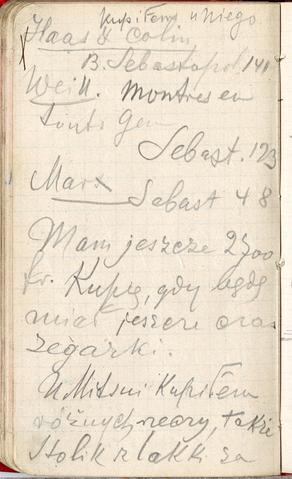 kupiłem u niego
Haas & Colin
B. Sebastopol 141
Weill. Montres en
touts Gen
Sebast. 123
Marx
Sebast 48
Mam jeszcze 2700
fr. Kupię, gdy będę
miał jeszcze oraz
zegarki.
U Mitsui kupiłem
różnych rzeczy, także
stolik z lakki za